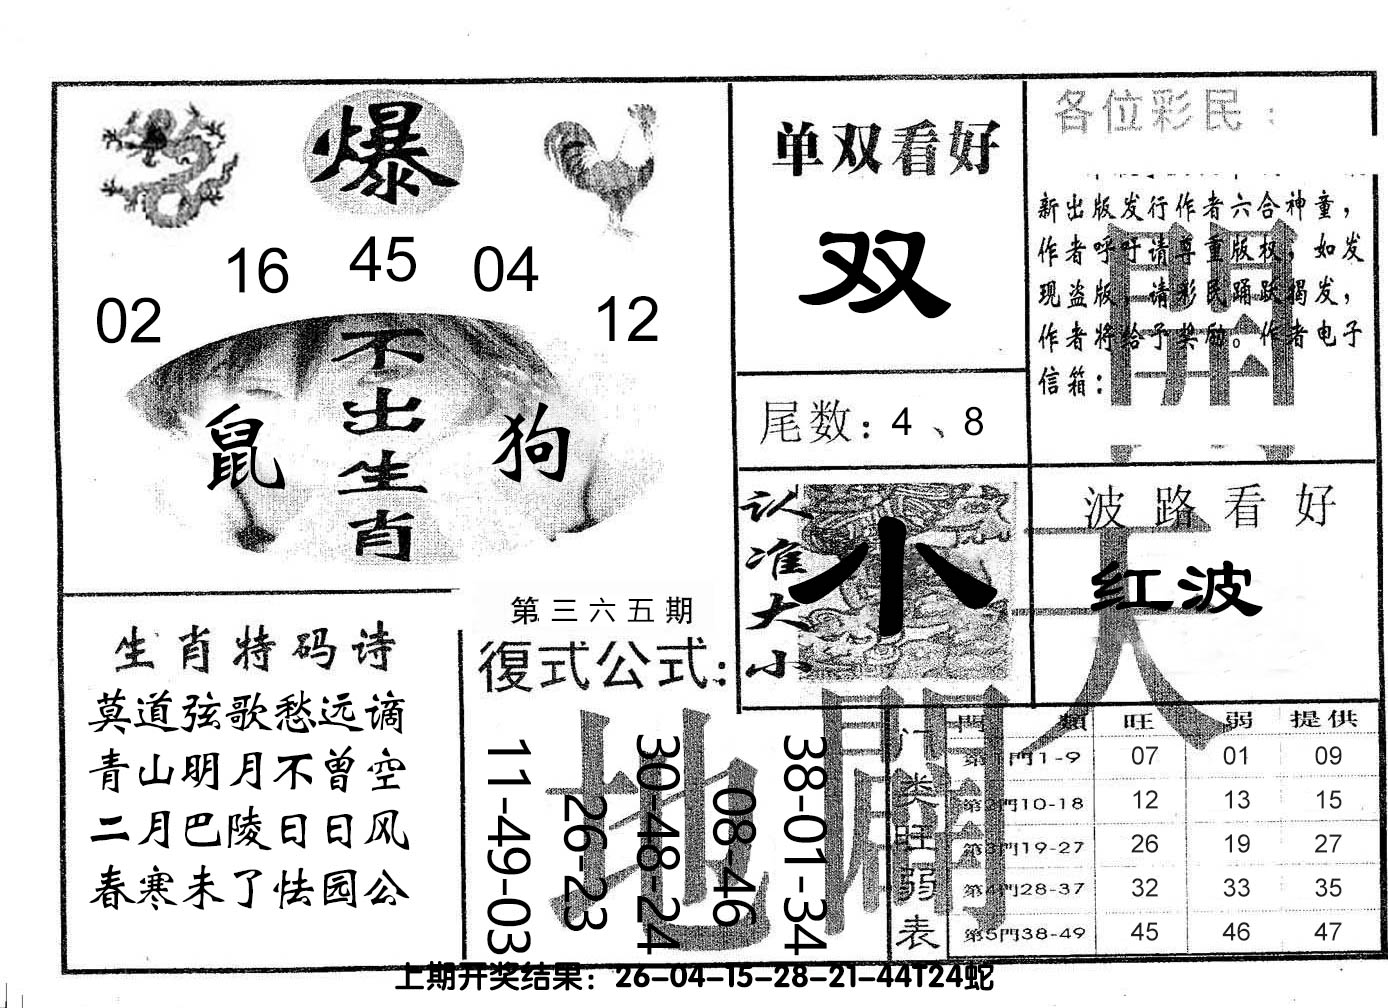 爆
02 16 45 04 12
不出生肖
鼠 狗
单双看好
双
尾数：4、8
各位彩民：
新出版发行作者六合神童，
作者呼吁请尊重版权，如发
现盗版，请彩民踊跃揭发，
作者将给予奖励。作者电子
信箱：
認准大小
小
波路看好
红波
天
開
地
生肖特码诗
莫道弦歌愁远谪
青山明月不曾空
二月巴陵日日风
春寒未了怯园公
第三六五期
復式公式：
11-49-03
26-23
30-48-24
08-46
38-01-34
门类旺弱表
門 類 旺 弱 提供
第1門1-9 07 01 09
第2門10-18 12 13 15
第3門19-27 26 19 27
第4門28-37 32 33 35
第5門38-49 45 46 47
上期开奖结果：26-04-15-28-21-44T24蛇